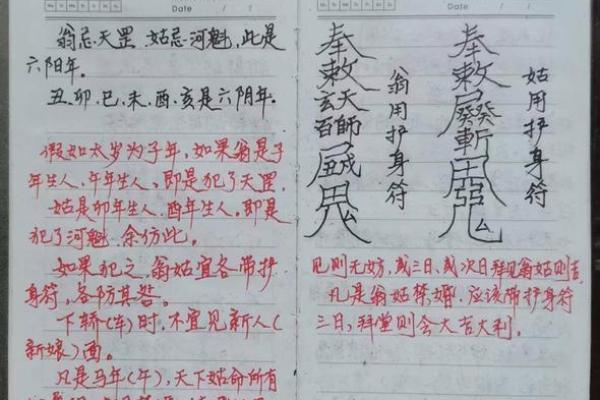 Date
翁忌天罡、姑忌河魁,此是
六阳年。
丑、卯、巳、未、酉、亥是六阴年。
假如太岁为子年,如果翁是子
年生人、午年生人,即是犯了天罡。
姑是卯年生人、酉年生人,即是
犯了河魁,余仿此。
如果犯之,翁姑宜各带护
身符,各防其咎。
下轿(车)时,不宜见新人(
新娘)面。
凡是马年(午),天下姑命所有
Date
奉敕
翁用护身符
奉敕
姑用护身符
见则无妨,或三日、或次日拜见翁姑则吉。
凡是翁姑禁婚,应该带护身符
三日,拜堂则会大吉大利。